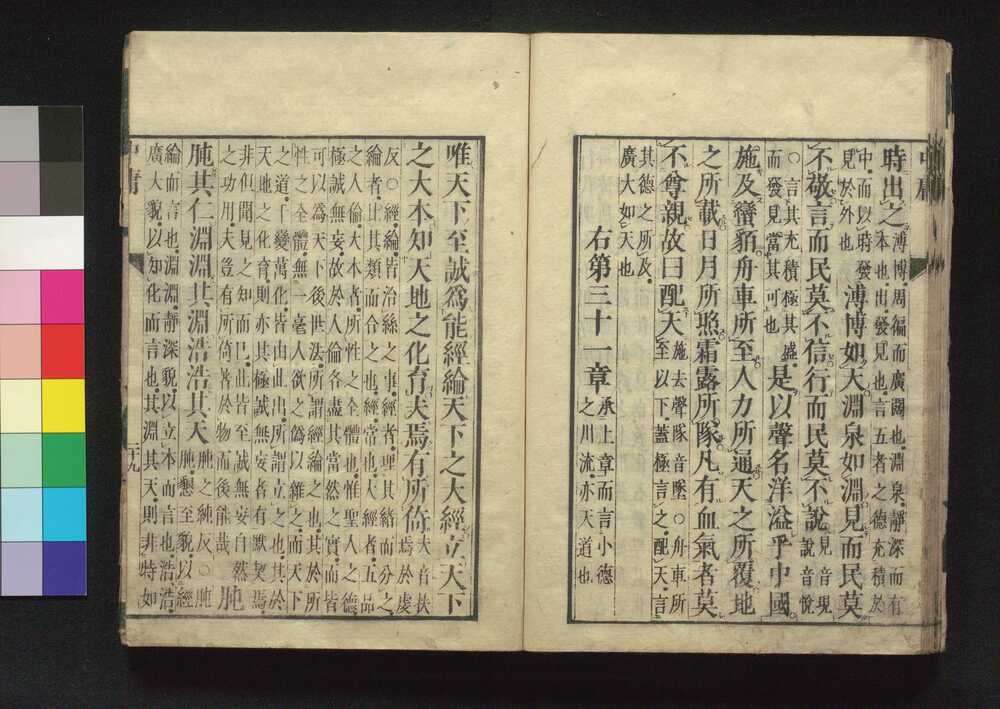 時出之溥博周徧而廣闊也淵泉靜深而有
本也出發見也言五者之德充積於
中而以時發
見於外也溥博如天淵泉如淵見而民莫
不敬言而民莫不信行而民莫不說見音現
說音悅
○言其充積極其盛
而發見當其可也是以聲名洋溢乎中國
施及蠻貊舟車所至人力所通天之所覆地
之所載日月所照霜露所隊凡有血氣者莫
不尊親故曰配天施去聲隊音墜○舟車所
至以下蓋極言之配天言
其德之所及
廣大如天也
右第三十一章承上章而言小德
之川流亦天道也
唯天下至誠爲能經綸天下之大經立天下
之大本知天地之化育夫焉有所倚夫音扶
焉於虔
反○經綸皆治絲之事經者理其緒而分之
綸者比其類而合之也經常也大經者五品
之人倫大本者所性之全體也惟聖人之德
極誠無妄故於人倫各盡其當然之實而皆
可以爲天下後世法所謂經綸之也其於所
性之全體無一毫人欲之僞以雜之而天下
之道千變萬化皆由此出所謂立之也其於
天地之化育則亦其極誠無妄者有默契焉
非但聞見之知而已此皆至誠無妄自然
之功用夫豈有所倚著於物而後能哉
肫肫其仁淵淵其淵浩浩其天肫之純反○肫
肫懇至貌以經
綸而言也淵淵靜深貌以立本而言也浩浩
廣大貌以知化而言也其淵其天則非特如
中庸
二十九